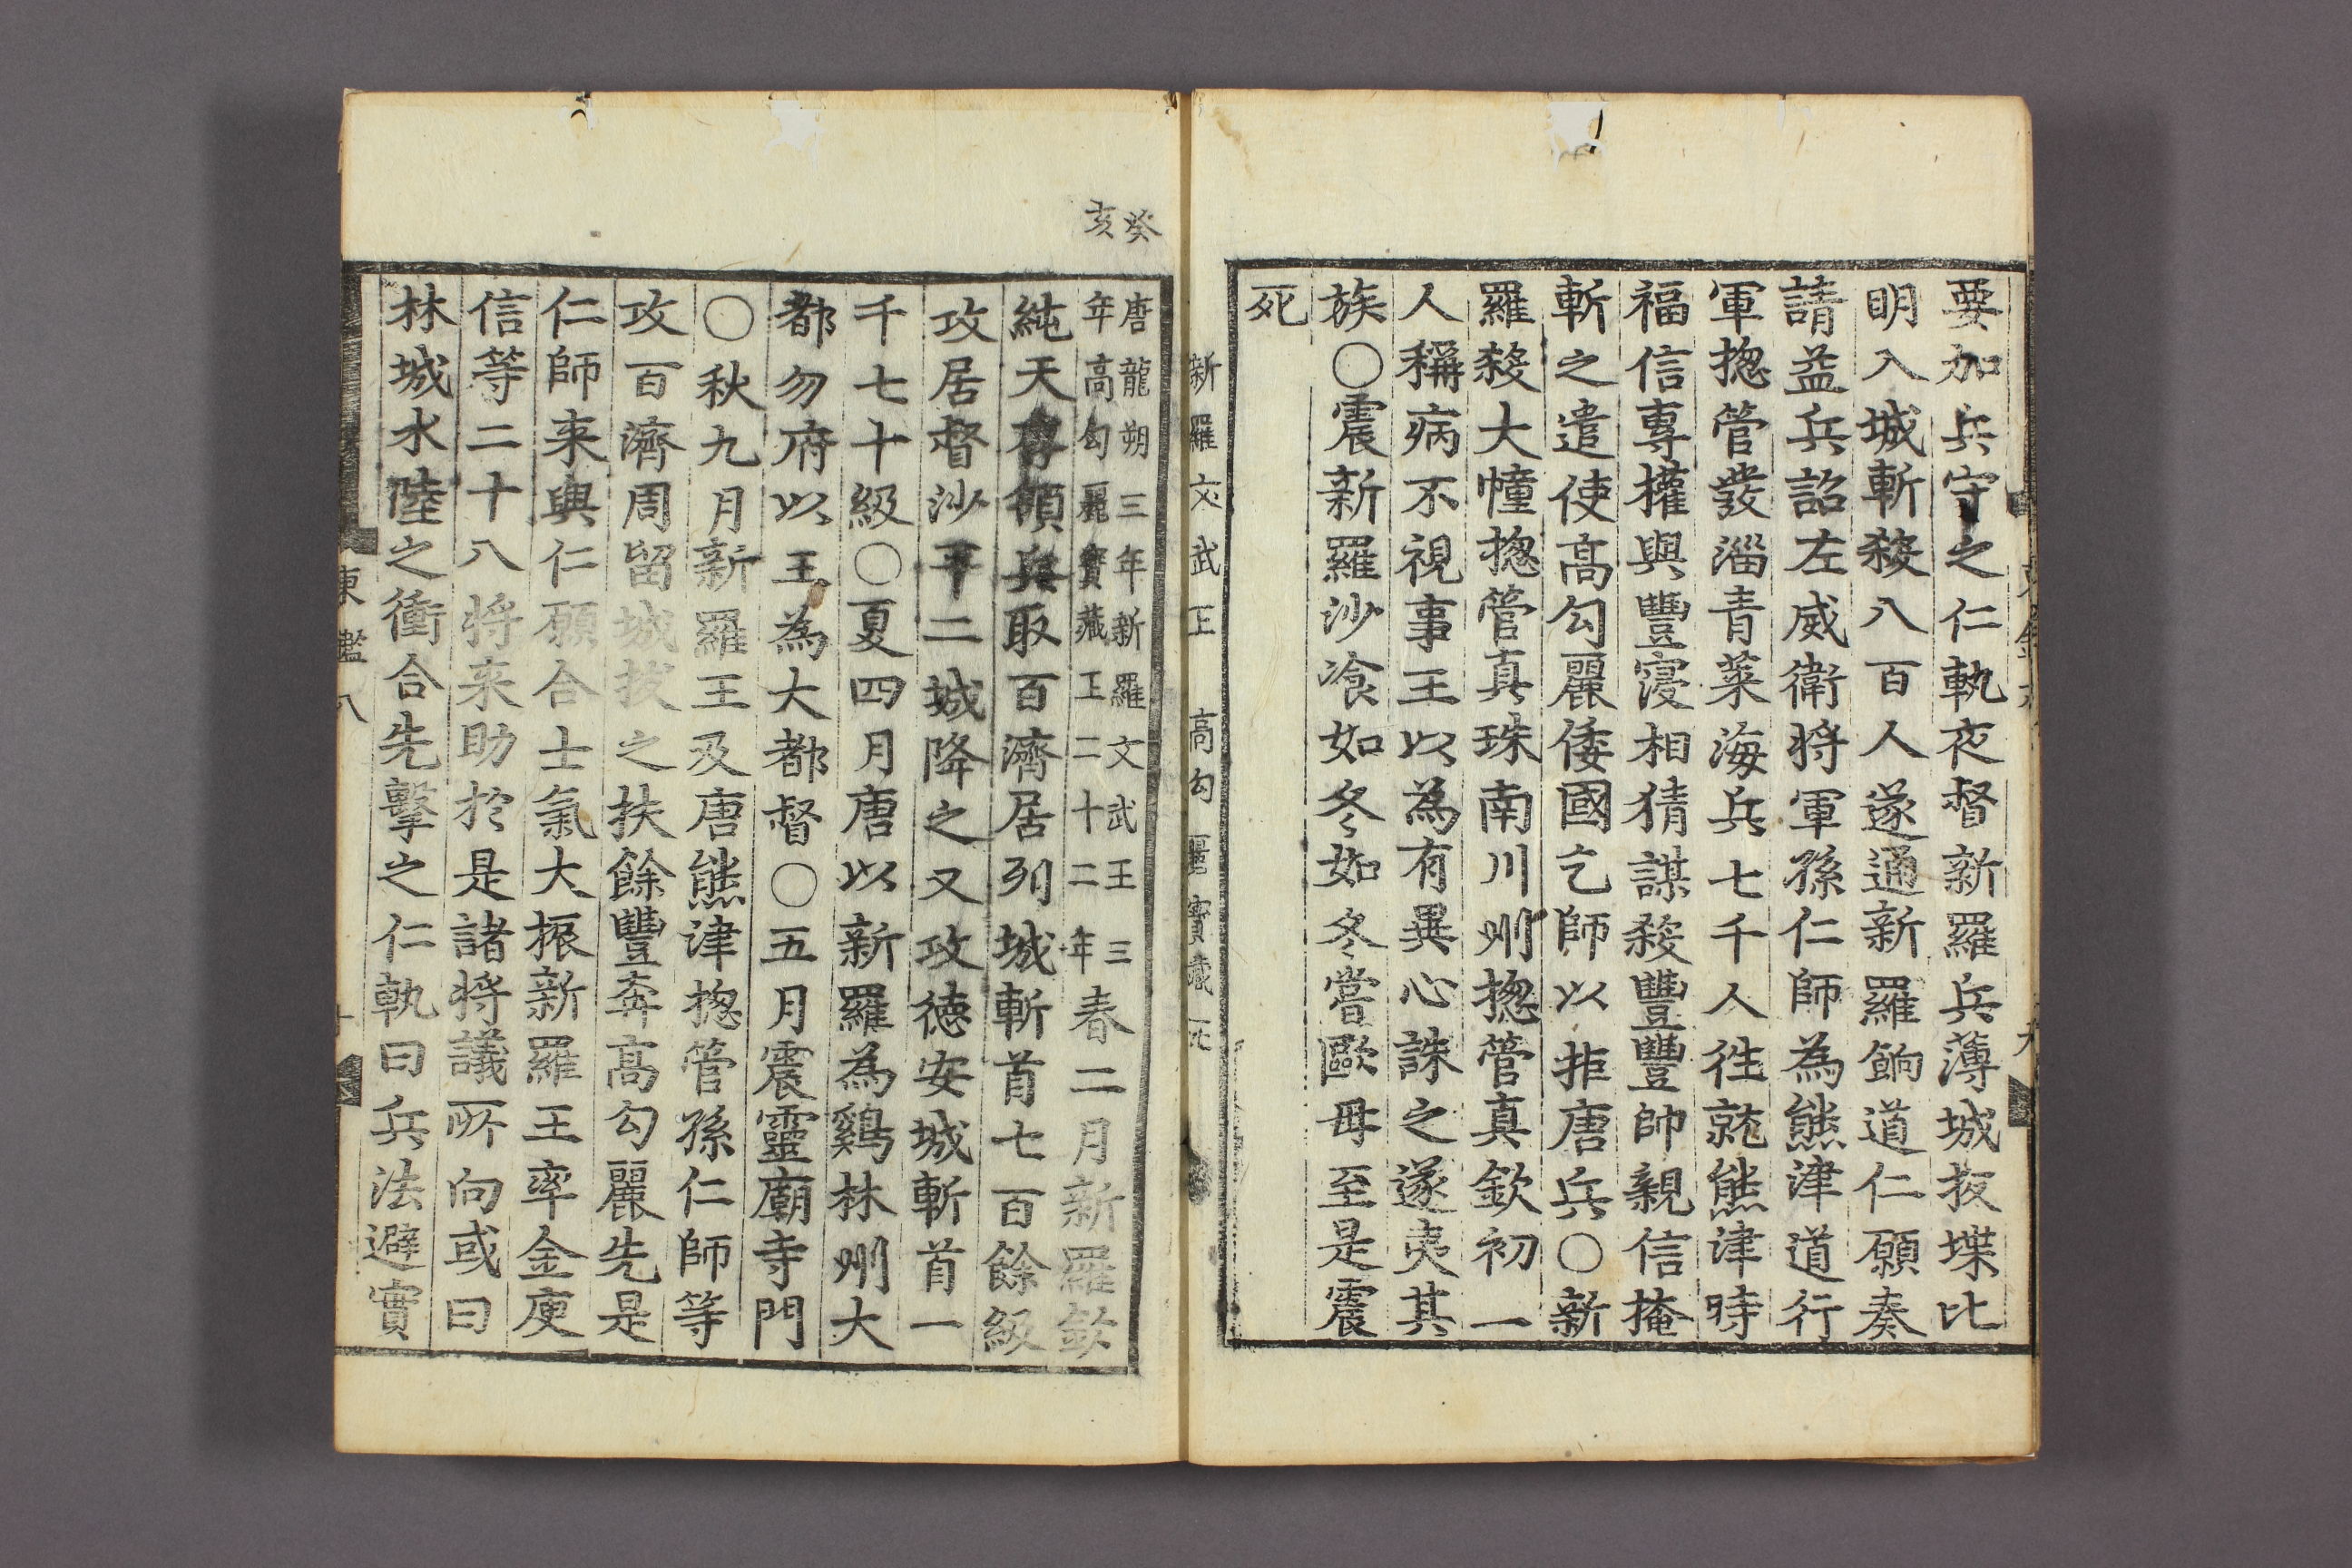 要加兵守之仁軌夜督新羅兵薄城扳堞比
明入城斬殺八百人遂通新羅餉道仁願奏
請益兵詔左威衛將軍孫仁師為熊津道行
軍揔管發淄青萊海兵七千人徃就熊津時
福信專權與豐寖相猜謀殺豐豐帥親信掩
斬之遣使高勾麗倭國乞師以拒唐兵○新
羅殺大幢揔管真珠南川州揔管真欽初一
人稱病不視事王以為有異心誅之遂夷其
族○震新羅沙飡如冬如冬嘗歐母至是震
死
新羅文武王 高勾麗寶藏
癸亥
唐龍朔三年新羅文武王三
年高勾麗寶藏王二十二年 春二月新羅欽
純天存領兵取百濟居列城斬首七百餘級
攻居督沙平二城降之又攻德安城斬首一
千七十級○夏四月唐以新羅為鷄林州大
都勿府以王為大都督○五月震靈廟寺門
○秋九月新羅王及唐熊津揔管孫仁師等
攻百濟周留城拔之扶餘豐奔高勾麗先是
仁師来與仁願合士氣大振新羅王率金庾
信等二十八將来助於是諸將議所向或曰
林城水陸之衝合先擊之仁軌曰兵法避實
東鑑八